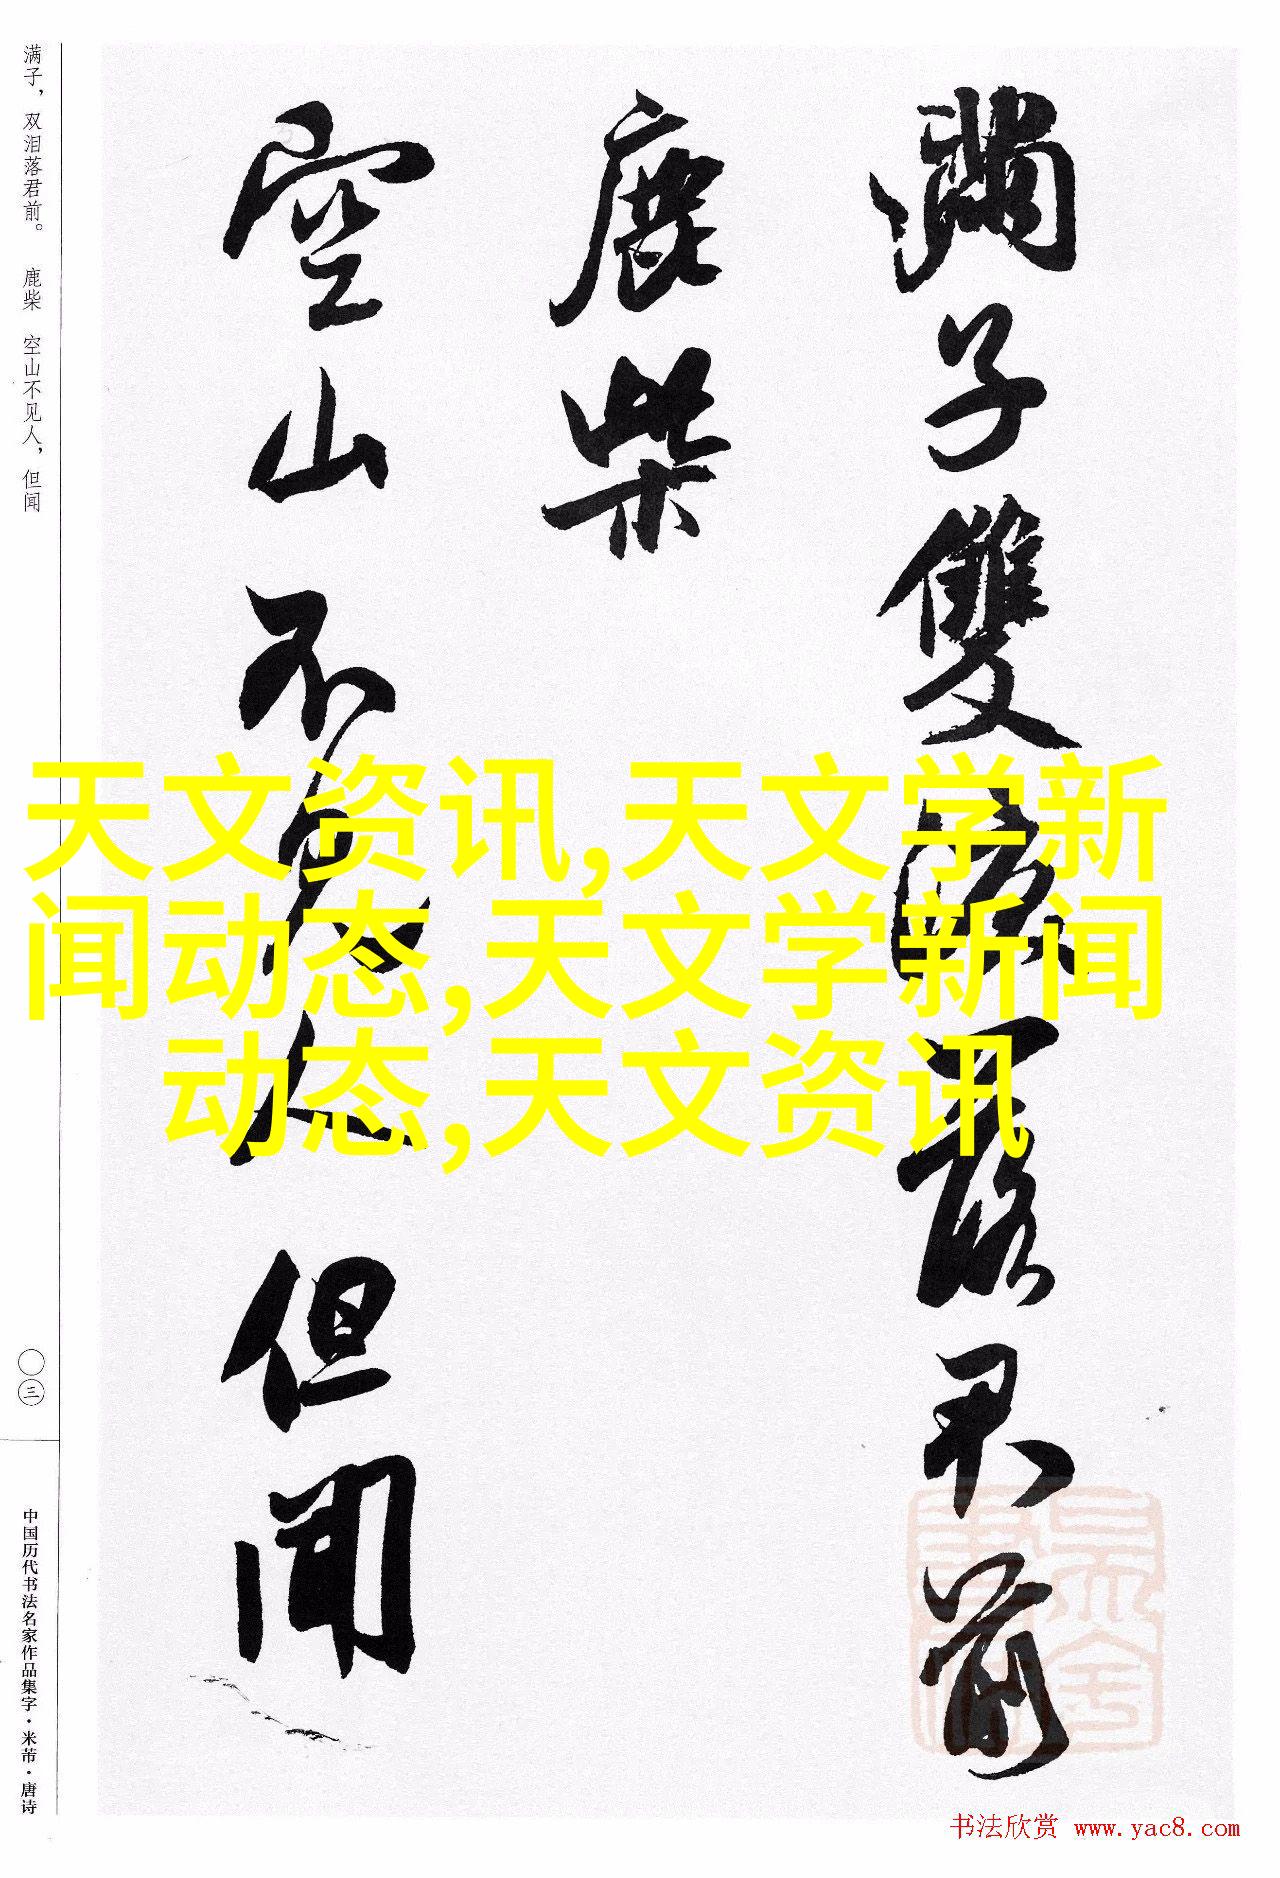 满子，双泪落君前。　鹿柴　空山不见人，但闻
满子雙淚落君前
鹿柴
空山不見人但闻
天文资讯,天文学新
闻动态,天文学新闻
动态,天文资讯
〇三
中国历代书法名家作品集字·米芾·唐诗
书法欣赏 www.yac8.com